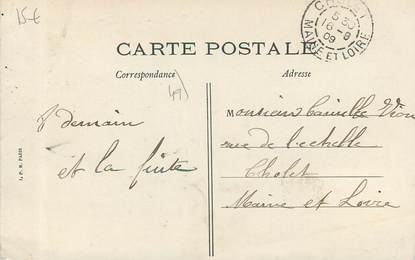 15€
CHOLET
5 30
16-8
09
MAINE ET LOIRE
CARTE POSTALE
Correspondance
Adresse
49)
demain
et la fuite
Monsieur Camille
rue de l'echelle
Cholet
Maine et Loire
J. P. R. PARIS